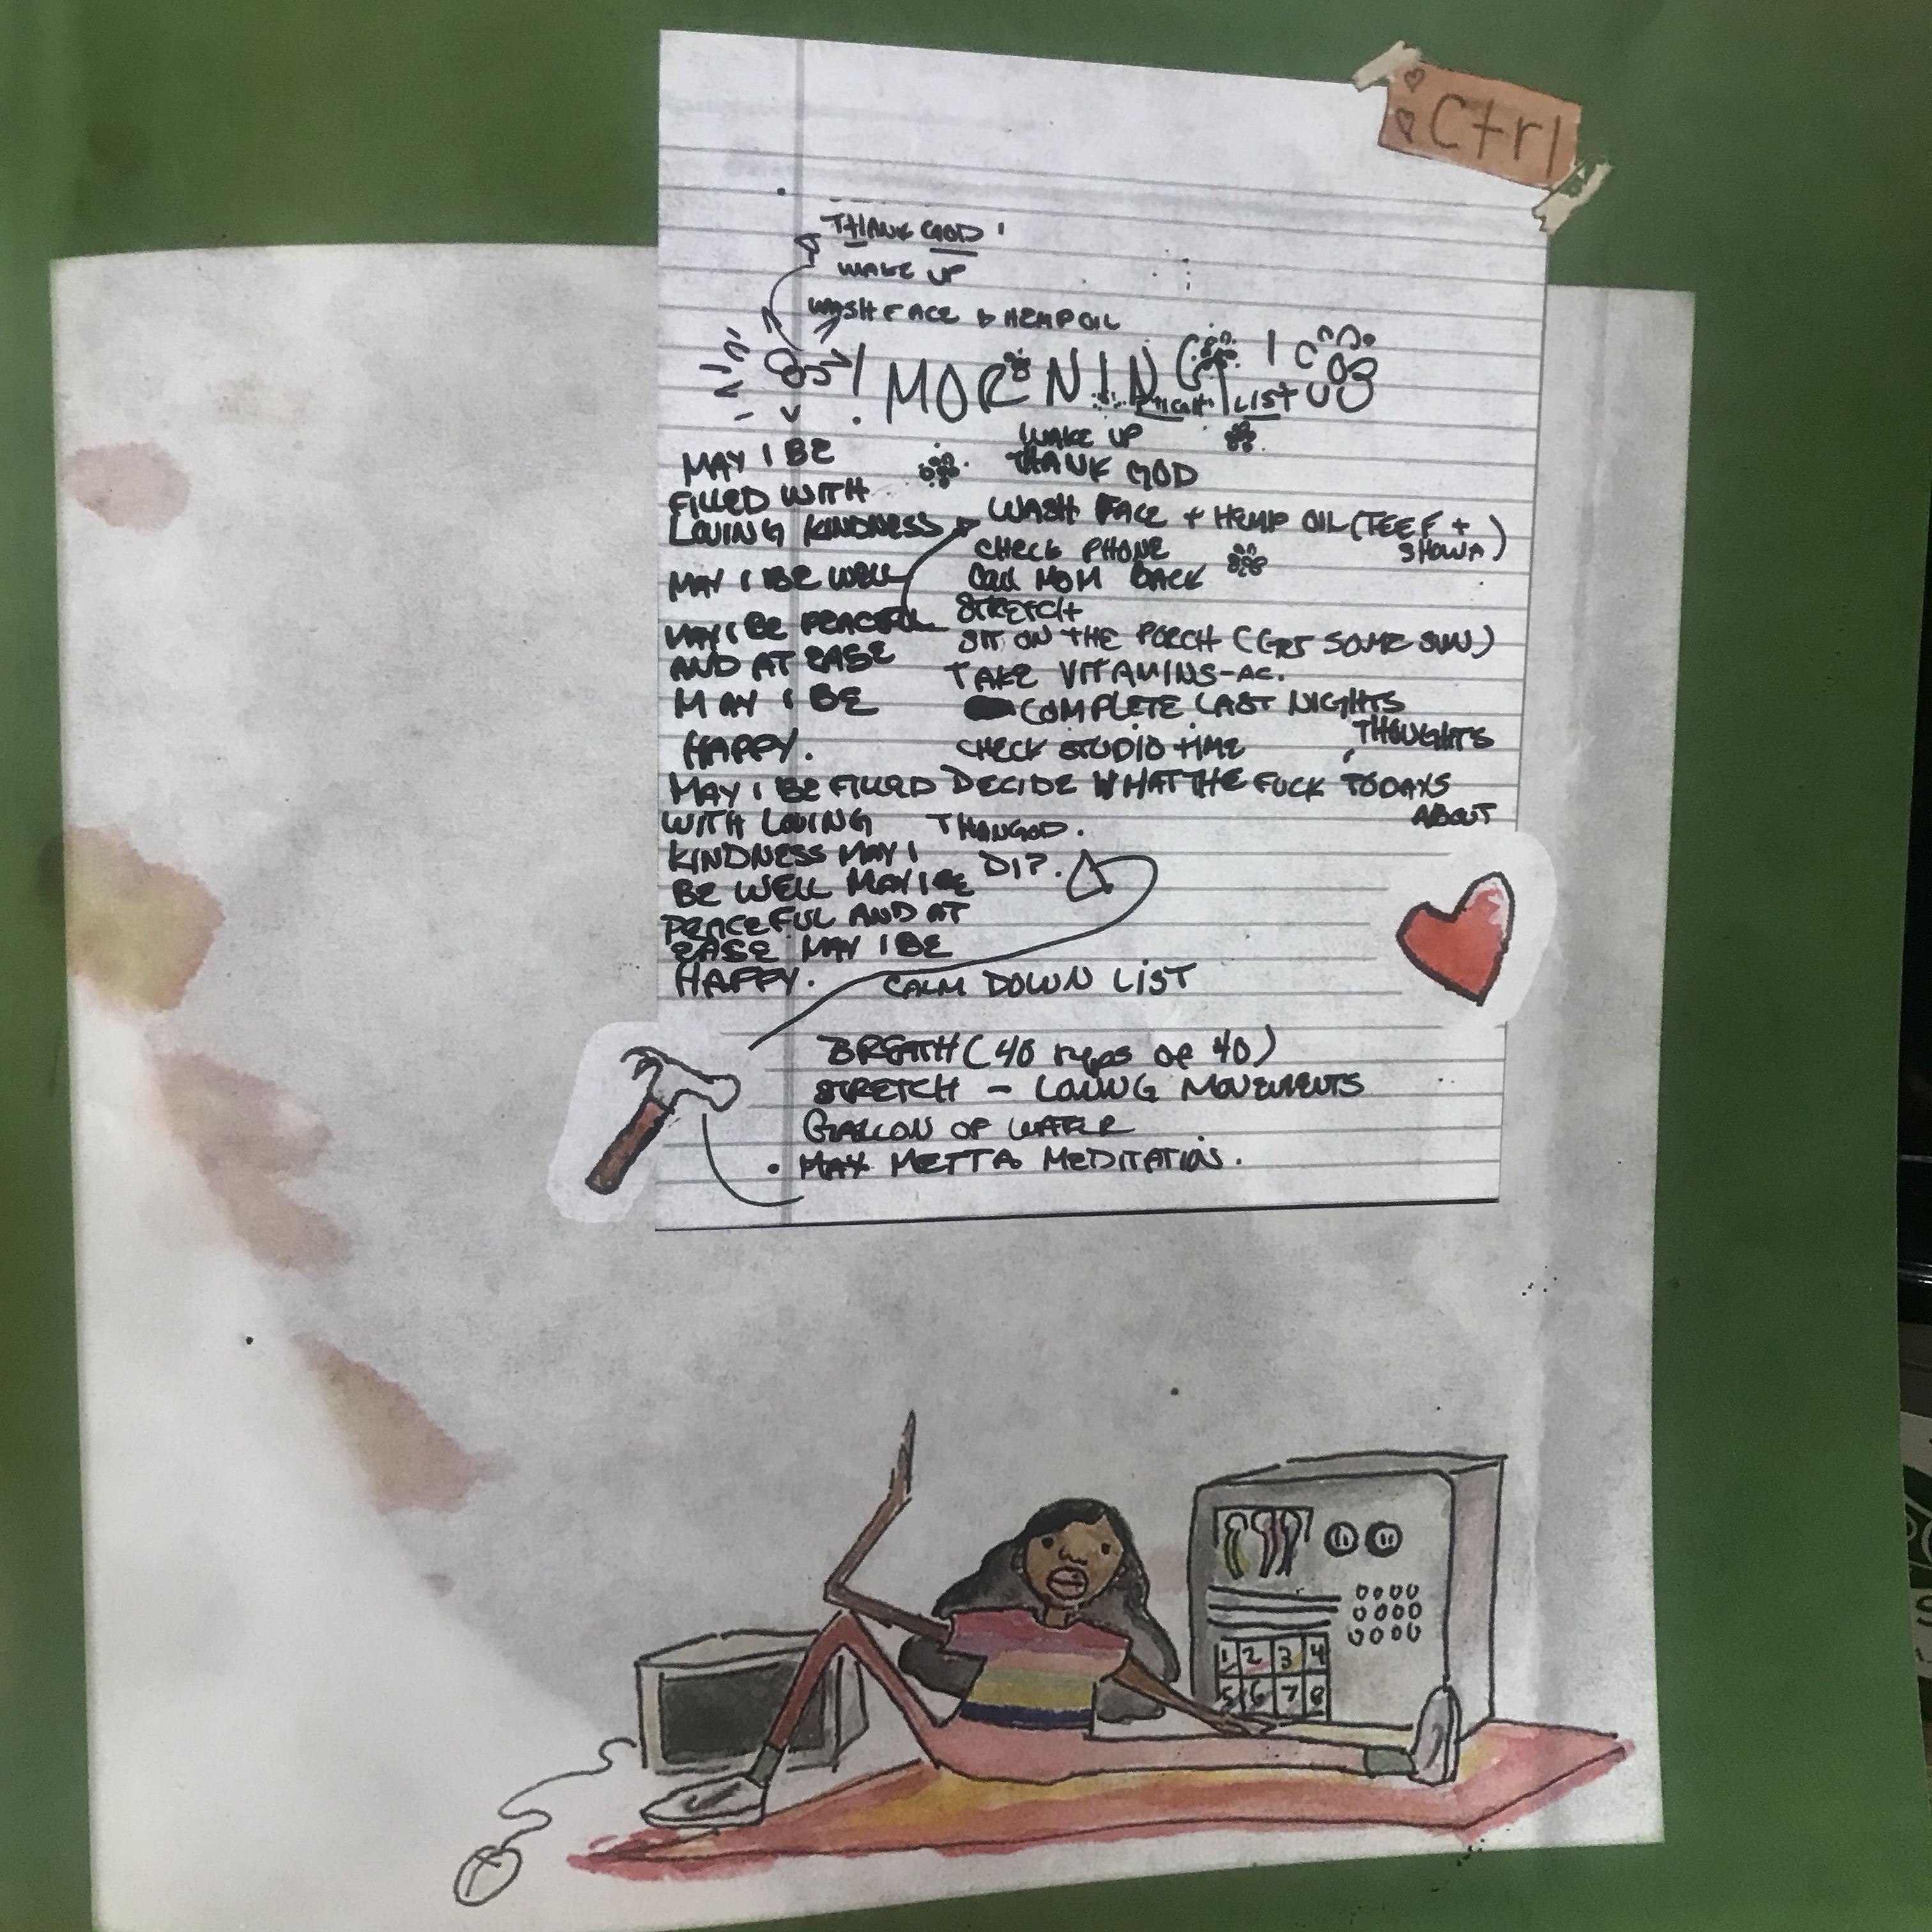 Ctrl
THANK GOD!
WAKE UP
WASH FACE & HEMP OIL
! MORNING!
LIST
MAY I BE
FILLED WITH
LOVING KINDNESS
MAY I BE WELL
MAY I BE PEACEFUL
AND AT EASE
MAY I BE
HAPPY.
MAY I BE FILLED
WITH LOVING
KINDNESS MAY I
BE WELL MAY I BE
PEACEFUL AND AT
EASE MAY I BE
HAPPY.
WAKE UP
THANK GOD
WASH FACE + HEMP OIL (TEEF +
SHOWA)
CHECK PHONE
Call MOM BACK
STRETCH
SIT ON THE PORCH (GET SOME SUN)
TAKE VITAMINS-AC.
COMPLETE LAST NIGHTS
THOUGHTS
CHECK STUDIO TIME
DECIDE WHAT THE FUCK TODAYS
ABOUT
THANGOD.
DI?.
CALM DOWN LIST
BREATH (40 reps of 40)
STRETCH - LOVING MOVEMENTS
GALLON OF WATER
• MAX METTA MEDITATION.
1 2 3 4
5 6 7 8